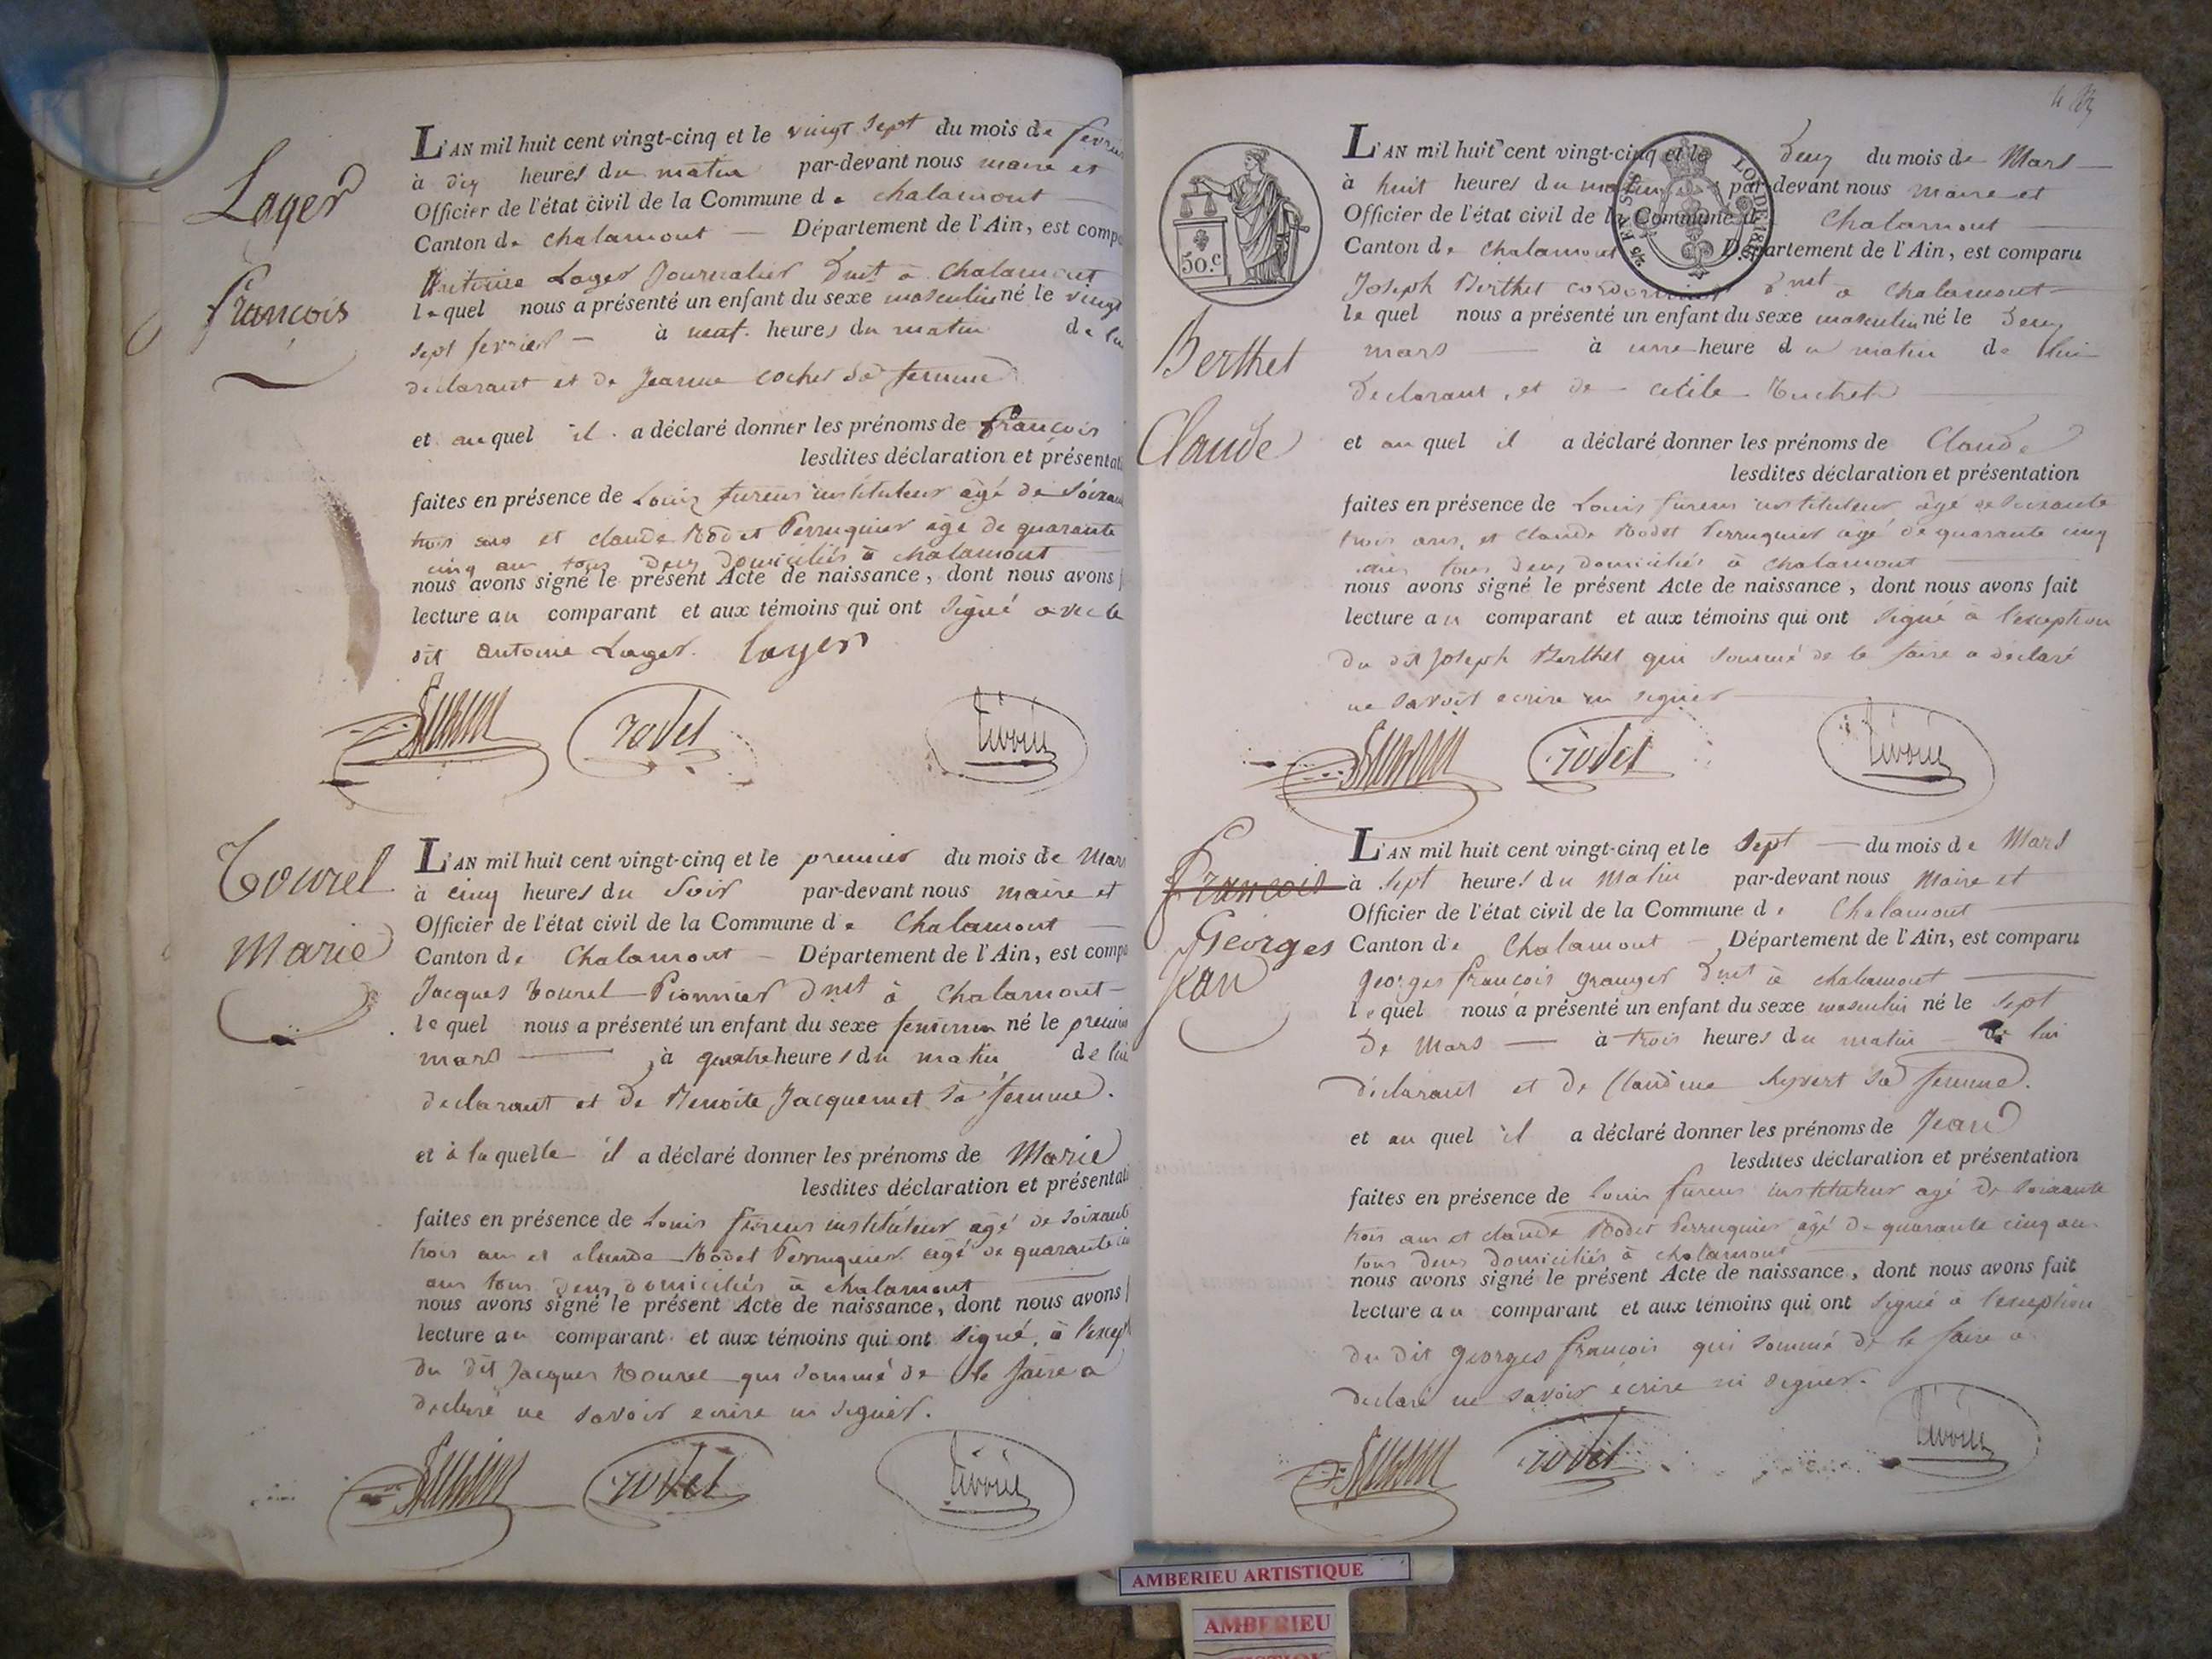 Lager
François
L'AN mil huit cent vingt-cinq et le vingt sept du mois de fevrier
à dix heures du matin par-devant nous maire et
Officier de l'état civil de la Commune de chalamont
Canton de chalamont — Département de l'Ain, est comp
Antoine Lager Journalier Dmt à chalamont
lequel nous a présenté un enfant du sexe masculin né le vingt
sept fevrier — à neuf heures du matin de lui
declarant et de Jeanne cochet sa femme
et auquel il a déclaré donner les prénoms de françois
lesdites déclaration et présentati
faites en présence de Louis instituteur âgé de soixan
trois ans et claude Rodet Perruquier âgé de quarante
cinq ans tous deux domiciliés à chalamont
nous avons signé le présent Acte de naissance, dont nous avons f
lecture au comparant et aux témoins qui ont signé avec le
dit antoine Lager. lager
rodet
Tourel
Marie
L'AN mil huit cent vingt-cinq et le premier du mois de Mars
à cinq heures du soir par-devant nous maire et
Officier de l'état civil de la Commune de Chalamont
Canton de Chalamont — Département de l'Ain, est compa
Jacques tourel Pionnier Dmt à Chalamont
lequel nous a présenté un enfant du sexe feminin né le premier
mars — à quatre heures du matin de lui
declarant et de Benoite Jacquemet sa femme.
et à laquelle il a déclaré donner les prénoms de Marie
lesdites déclaration et présentati
faites en présence de Louis instituteur âgé de soixante
trois ans et claude Rodet Perruquier âgé de quarante cin
ans tous deux domiciliés à chalamont
nous avons signé le présent Acte de naissance, dont nous avons f
lecture au comparant et aux témoins qui ont signé, à l'excep
du dit Jacques tourel qui sommé de le faire a
declaré ne savoir ecrire ni signer.
rodet
50.c
Berthet
Claude
L'AN mil huit cent vingt-cinq et le deux du mois de Mars
à huit heures du matin par-devant nous maire et
Officier de l'état civil de la Commune de Chalamont
Canton de Chalamont Département de l'Ain, est comparu
Joseph Berthet cordonnier Dmt à Chalamont
lequel nous a présenté un enfant du sexe masculin né le deux
mars — à une heure du matin de lui
declarant, et de cecile
et auquel il a déclaré donner les prénoms de Claude
lesdites déclaration et présentation
faites en présence de Louis instituteur âgé de soixante
trois ans, et Claude Rodet Perruquier âgé de quarante cinq
ans tous deux domiciliés à chalamont
nous avons signé le présent Acte de naissance, dont nous avons fait
lecture au comparant et aux témoins qui ont signé à l'exception
du dit Joseph Berthet qui sommé de le faire a déclaré
ne savoir ecrire ni signer
rodet
François
Georges
jean
L'AN mil huit cent vingt-cinq et le sept — du mois de Mars
à sept heures du Matin par-devant nous Maire et
Officier de l'état civil de la Commune de Chalamont
Canton de Chalamont — Département de l'Ain, est comparu
georges françois granger Dmt à chalamont
lequel nous a présenté un enfant du sexe masculin né le sept
de Mars — à trois heures du matin de lui
déclarant et de Claudine sa femme.
et auquel il a déclaré donner les prénoms de Jean
lesdites déclaration et présentation
faites en présence de Louis instituteur agé de soixante
trois ans et claude Rodet Perruquier âgé de quarante cinq ans
tous deux domiciliés à chalamont
nous avons signé le présent Acte de naissance, dont nous avons fait
lecture au comparant et aux témoins qui ont signé à l'exception
du dit georges françois qui sommé de le faire a
declaré ne savoir ecrire ni signer.
rodet
AMBERIEU ARTISTIQUE
AMBERIEU